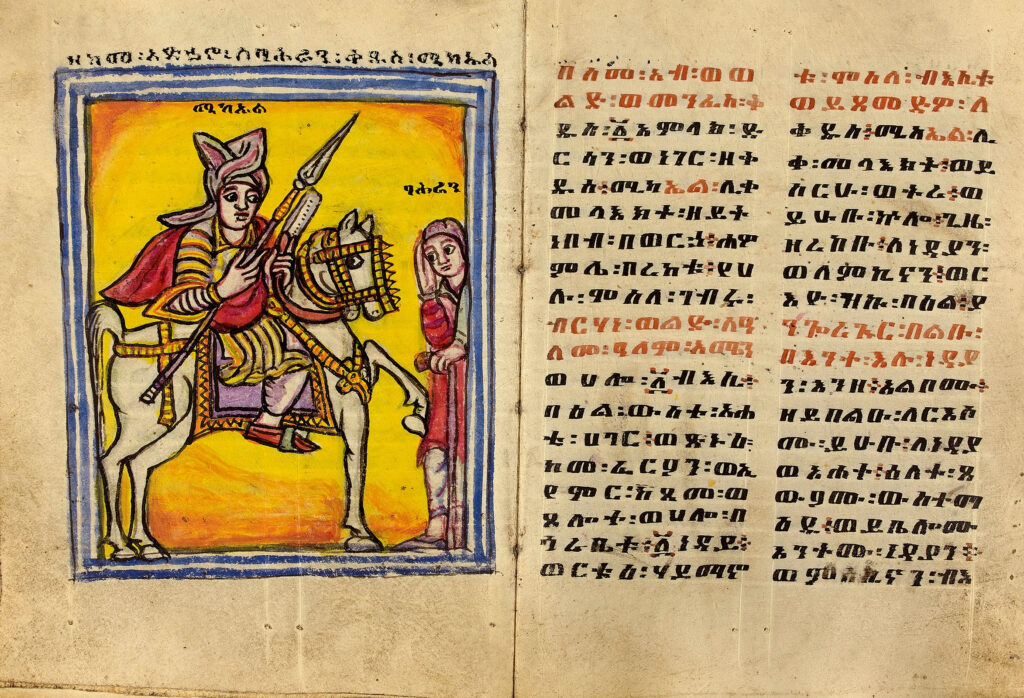 ዘከመ፡አድኀኖ፡ለባሕራን፡ቅዱስ፡ሚካኤል
ሚካኤል
ባሕራን
በስመ፡አብ፡ወወ
ልድ፡ወመንፈስ፡ቅ
ዱስ፡፩አምላክ፡ድ
ርሳን፡ወነገር፡ዘቅ
ዱስ፡ሚካኤል፡ሊቀ
መላእክት፡ዘይት
ነበብ፡በወርኃ፡ሐም
ሌ፡በረከቱ፡የሀ
ሉ፡ምስለ፡ገብሩ፡
ብርሃነ፡ወልድ፡ለዓ
ለመ፡ዓለም፡አሜን
ወሀሎ፡፩ብእሲ፡
በዕል፡ውስተ፡አሐ
ቲ፡ሀገር፡ወጽኑዕ፡
ከመ፡ፈርዖን፡ወኢ
የምር፡ጸመ፡ወ
ጸሎተ፡ወሀሎ፡በ
ጎረቤቱ፡፩ነዳይ፡
ወርቱዕ፡ሃይማኖ
ቱ፡ምስለ፡ብእሲቱ
ወይጸመድዎ፡ለ
ቅዱስ፡ሚካኤል፡ሊ
ቀ፡መላእክት፡ወይ
ሰርሁ፡ወትረ፡ወ
ይሁቡ፡ኵሎ፡ጊዜ፡
ዘረከቡ፡ለነዳያን፡
ወለምስኪናን፡ወር
እዮ፡ዝኩ፡በዕል፡የ
ንጐረጕር፡በልቡ፡
በእንተ፡እሉ፡ነዳያ
ን፡እንዘ፡አልቦሙ፡
ዘይበልዑ፡ለርእሶ
ሙ፡ይሁቡ፡ለነዳያ
ወአሐተ፡ዕለተ፡ጸ
ውዖሙ፡
ወይቤሎሙ
አንተሙ፡ነዳያን፡
ወምስኪናን፡ብእ